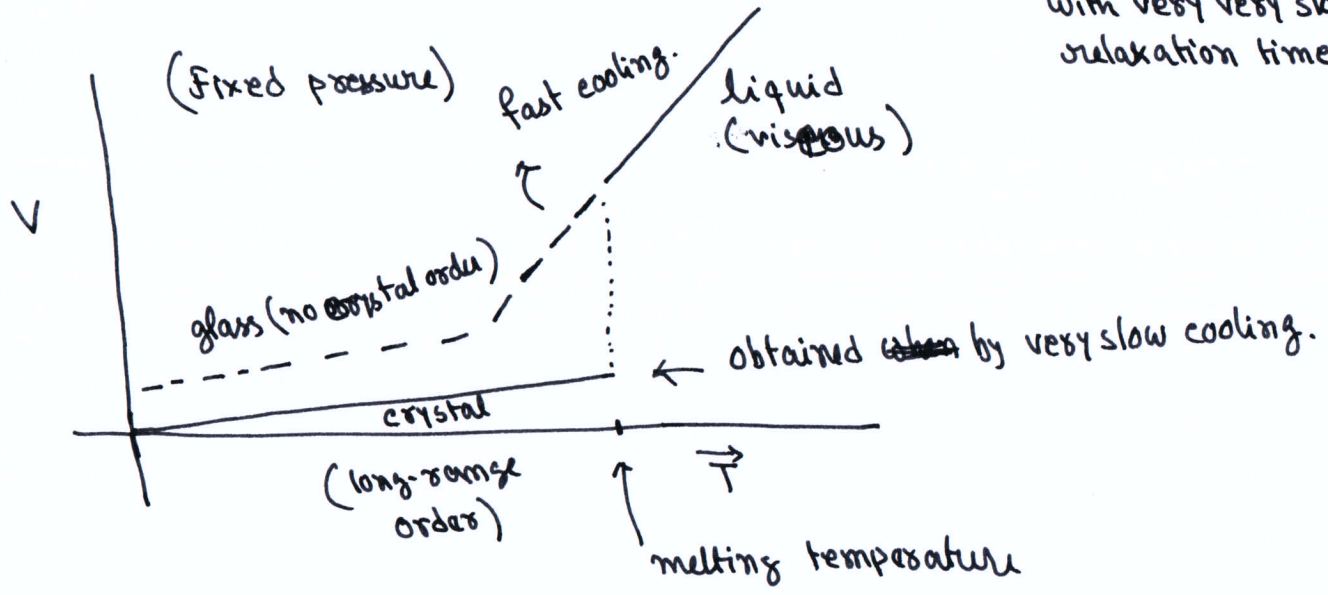 with very very
relaxation time
(Fixed pressure)
fast cooling.
liquid
(viscous)
V
glass (no crystal order)
← obtained by very slow cooling.
crystal
(long-range
order)
T
melting temperature